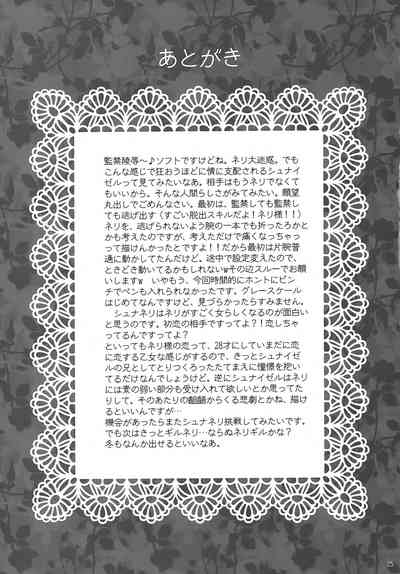 あとがき
監禁陵辱〜♪ソフトですけどね。ネリ大迷惑。でも
こんな感じで狂おうほどに情に支配されるシュナイ
ゼルって見てみたいなあ。相手はもうネリでなくて
もいいから。そんな人間らしさがみてみたい。願望
丸出しでごめんなさい。最初は、監禁しても監禁し
ても逃げ出す(すごい脱出スキルだよ!ネリ様!!)
ネリを、逃げられないよう腕の一本でも折ったろかと
かも考えたのですが、考えただけで痛くなっちゃ
って描けんかったとですよ!!だから最初は片腕普
通に動かしてたんだけど。途中で設定変えたので、
ときどき動いてるかもしれないwその辺スルーでお願
いしますw いやもう、今回時間的にホントにピン
チでペンも入れられなかったです。グレースケール
はじめてなんですけど、見づらかったらすみません。
シュナネリはネリがすごく女らしくなるのが面白い
と思うのです。初恋の相手ですってよ?!恋しちゃ
ってるんですってよ?
といってもネリ様の恋って、28才にしていまだに恋
に恋する乙女な感じがするので、きっとシュナイゼル
の兄としてとりつくろったたてまえに憧憬を抱い
てるだけなんでしょうけど。逆にシュナイゼルはネリ
には素の弱い部分も受け入れて欲しいとか思ってた
りして。そのあたりの齟齬からくる悲劇とかね、描け
るといいんですが…
機会があったらまたシュナネリ挑戦してみたいです。
でも次はきっとギルネリ…ならぬネリギルかな?
冬もなんか出せるといいなあ。
25